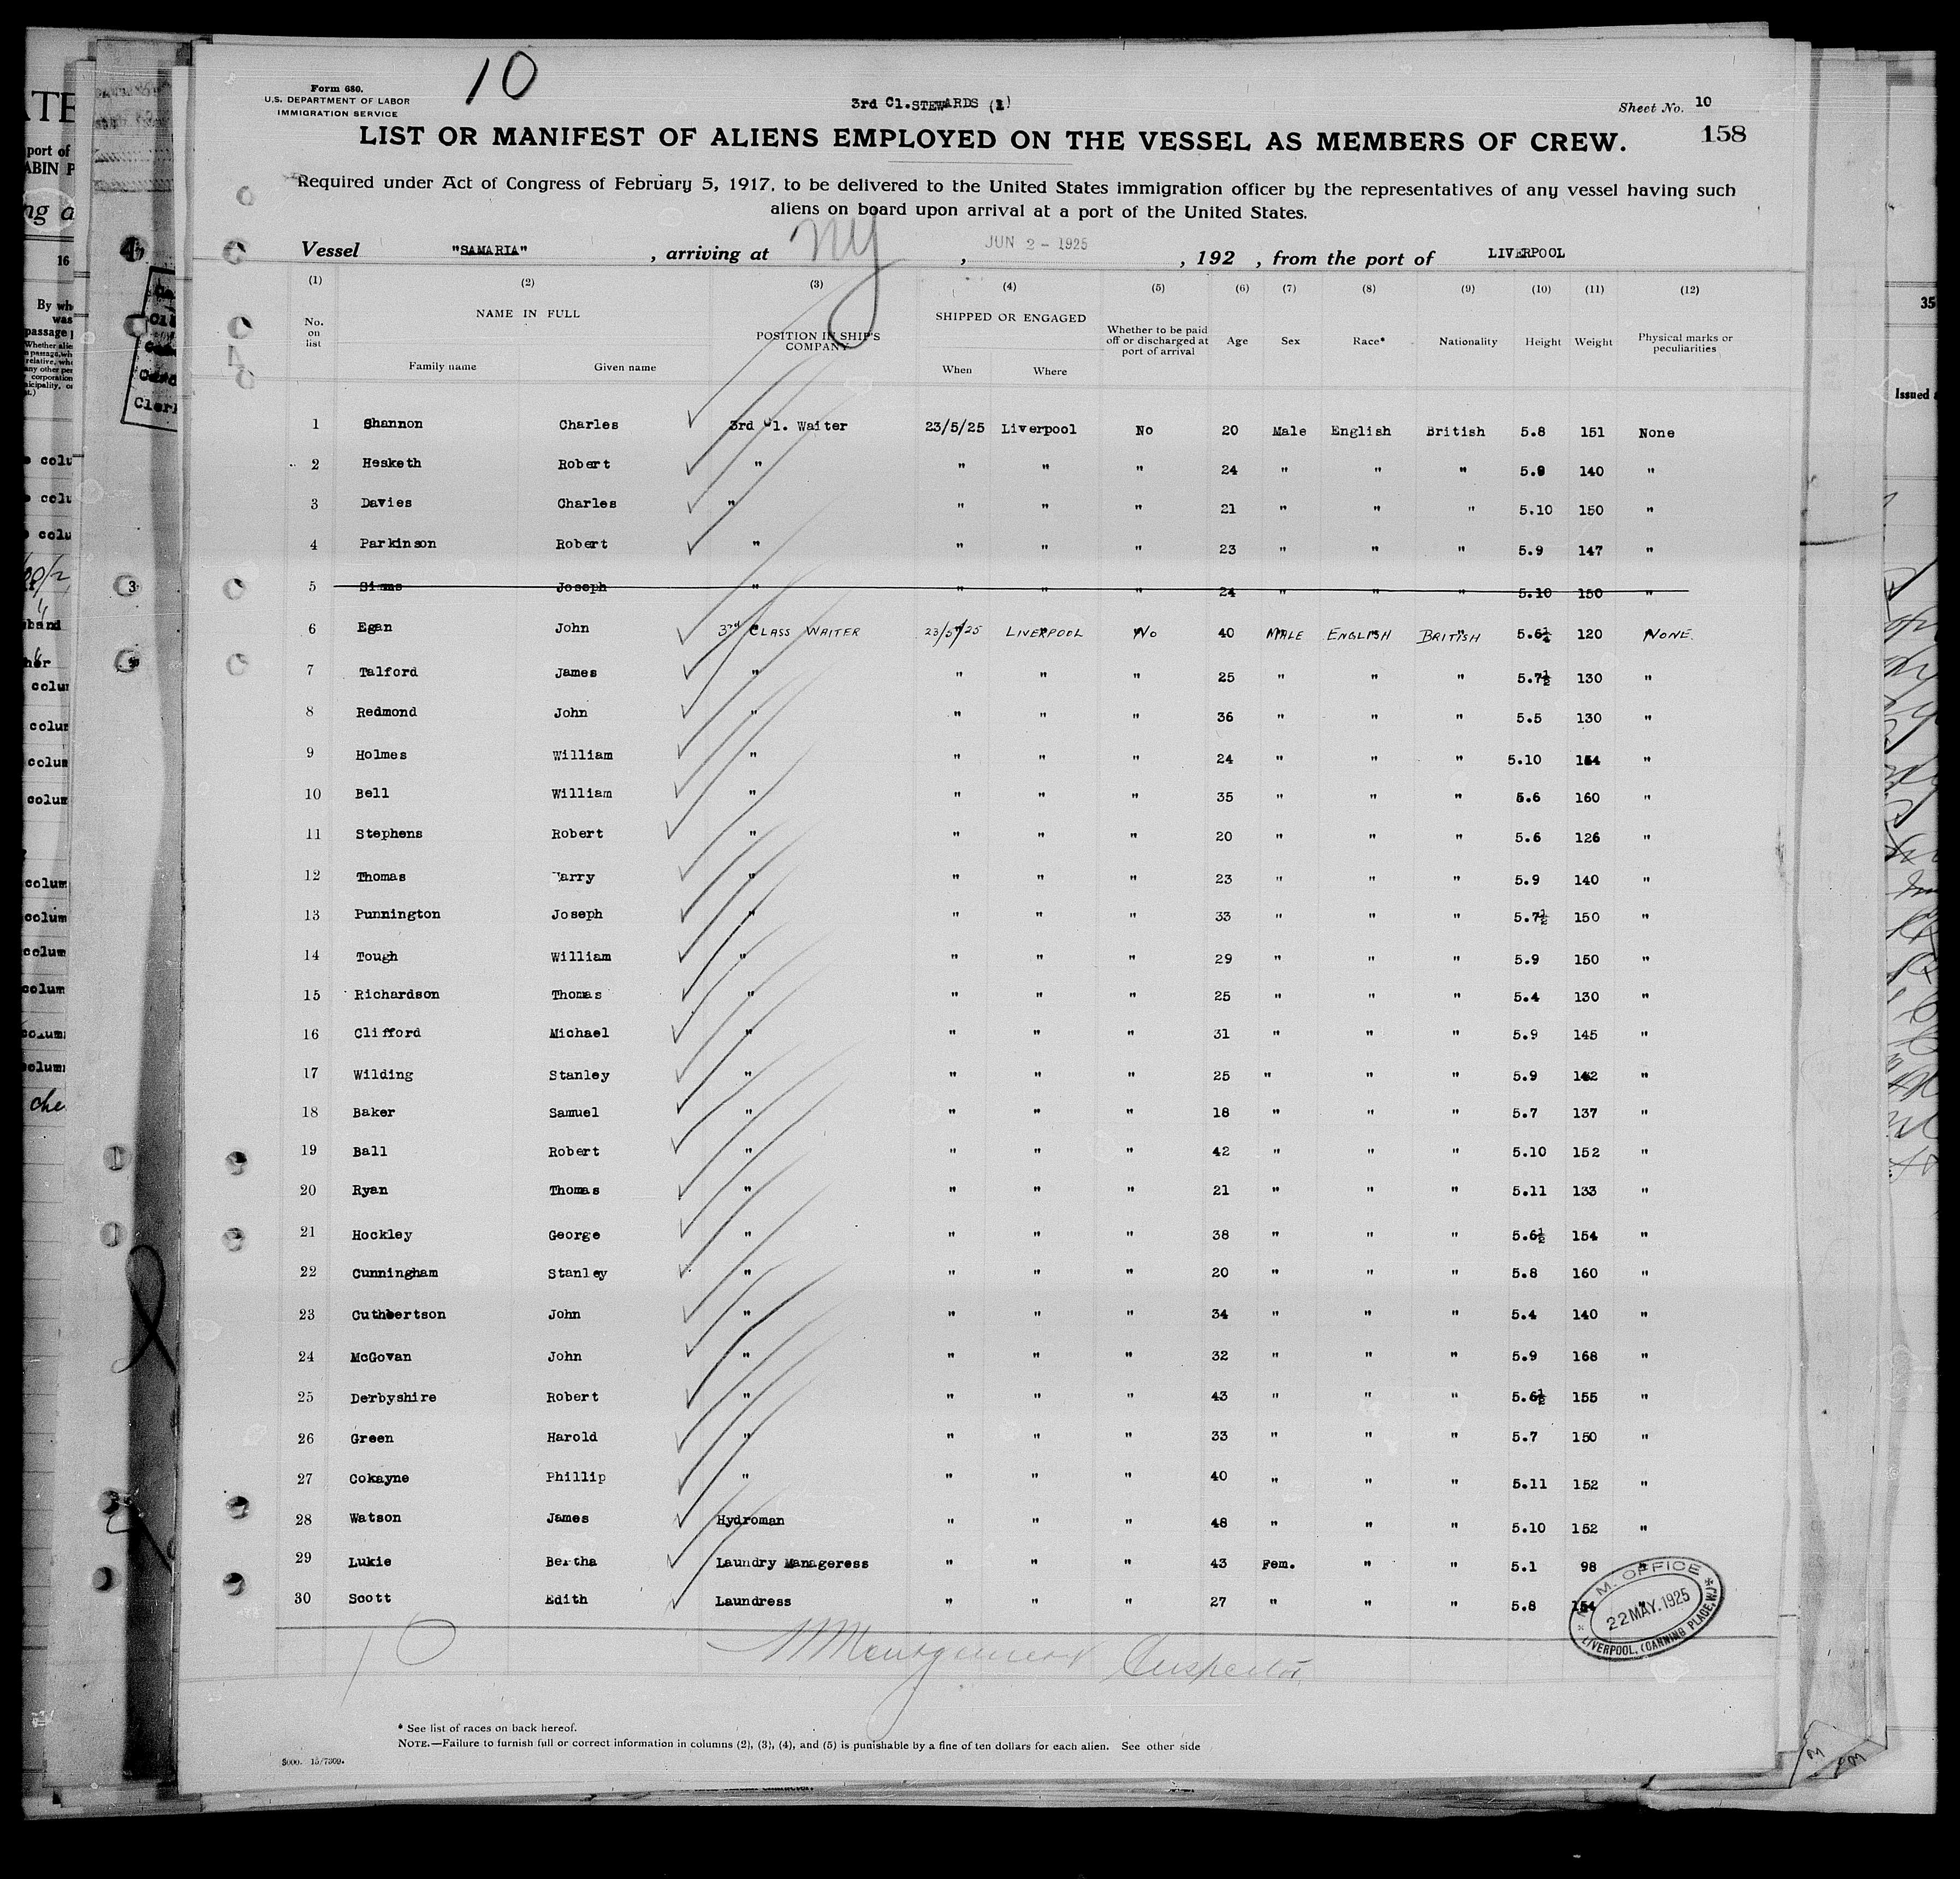 10
Form 680.
U.S. DEPARTMENT OF LABOR
IMMIGRATION SERVICE
3rd Cl. STEWARDS (1)
Sheet No. 10
158
LIST OR MANIFEST OF ALIENS EMPLOYED ON THE VESSEL AS MEMBERS OF CREW.
Required under Act of Congress of February 5, 1917, to be delivered to the United States immigration officer by the representatives of any vessel having such
aliens on board upon arrival at a port of the United States.
Vessel "SAMARIA" , arriving at NY , JUN 2 - 1925 , 192 , from the port of LIVERPOOL
(1) (2) (3) (4) (5) (6) (7) (8) (9) (10) (11) (12)
No. on list NAME IN FULL Family name Given name POSITION IN SHIP'S COMPANY SHIPPED OR ENGAGED When Where Whether to be paid off or discharged at port of arrival Age Sex Race* Nationality Height Weight Physical marks or peculiarities
1 Shannon Charles 3rd Cl. Waiter 23/5/25 Liverpool No 20 Male English British 5.8 151 None
2 Hesketh Robert " " " " 24 " " " 5.9 140 "
3 Davies Charles " " " " 21 " " " 5.10 150 "
4 Parkinson Robert " " " " 23 " " " 5.9 147 "
5 Simms Joseph " " " " 24 " " " 5.10 150 "
6 Egan John 3rd CLASS WAITER 23/5/25 LIVERPOOL No 40 MALE ENGLISH BRITISH 5.6¼ 120 NONE.
7 Talford James " " " " 25 " " " 5.7½ 130 "
8 Redmond John " " " " 36 " " " 5.5 130 "
9 Holmes William " " " " 24 " " " 5.10 154 "
10 Bell William " " " " 35 " " " 5.6 160 "
11 Stephens Robert " " " " 20 " " " 5.6 126 "
12 Thomas Harry " " " " 23 " " " 5.9 140 "
13 Punnington Joseph " " " " 33 " " " 5.7½ 150 "
14 Tough William " " " " 29 " " " 5.9 150 "
15 Richardson Thomas " " " " 25 " " " 5.4 130 "
16 Clifford Michael " " " " 31 " " " 5.9 145 "
17 Wilding Stanley " " " " 25 " " " 5.9 142 "
18 Baker Samuel " " " " 18 " " " 5.7 137 "
19 Ball Robert " " " " 42 " " " 5.10 152 "
20 Ryan Thomas " " " " 21 " " " 5.11 133 "
21 Hockley George " " " " 38 " " " 5.6½ 154 "
22 Cunningham Stanley " " " " 20 " " " 5.8 160 "
23 Cuthbertson John " " " " 34 " " " 5.4 140 "
24 McGovan John " " " " 32 " " " 5.9 168 "
25 Derbyshire Robert " " " " 43 " " " 5.6½ 155 "
26 Green Harold " " " " 33 " " " 5.7 150 "
27 Cokayne Phillip " " " " 40 " " " 5.11 152 "
28 Watson James Hydroman " " " 48 " " " 5.10 152 "
29 Lukie Bertha Laundry Manageress " " " 43 Fem. " " 5.1 98 "
30 Scott Edith Laundress " " " 27 " " " 5.8 154 "
M. M. OFFICE
22 MAY. 1925
LIVERPOOL, (CANNING PLACE, W.)
10 Montgomery Inspector
* See list of races on back hereof.
NOTE.—Failure to furnish full or correct information in columns (2), (3), (4), and (5) is punishable by a fine of ten dollars for each alien. See other side
5000. 15/7309.